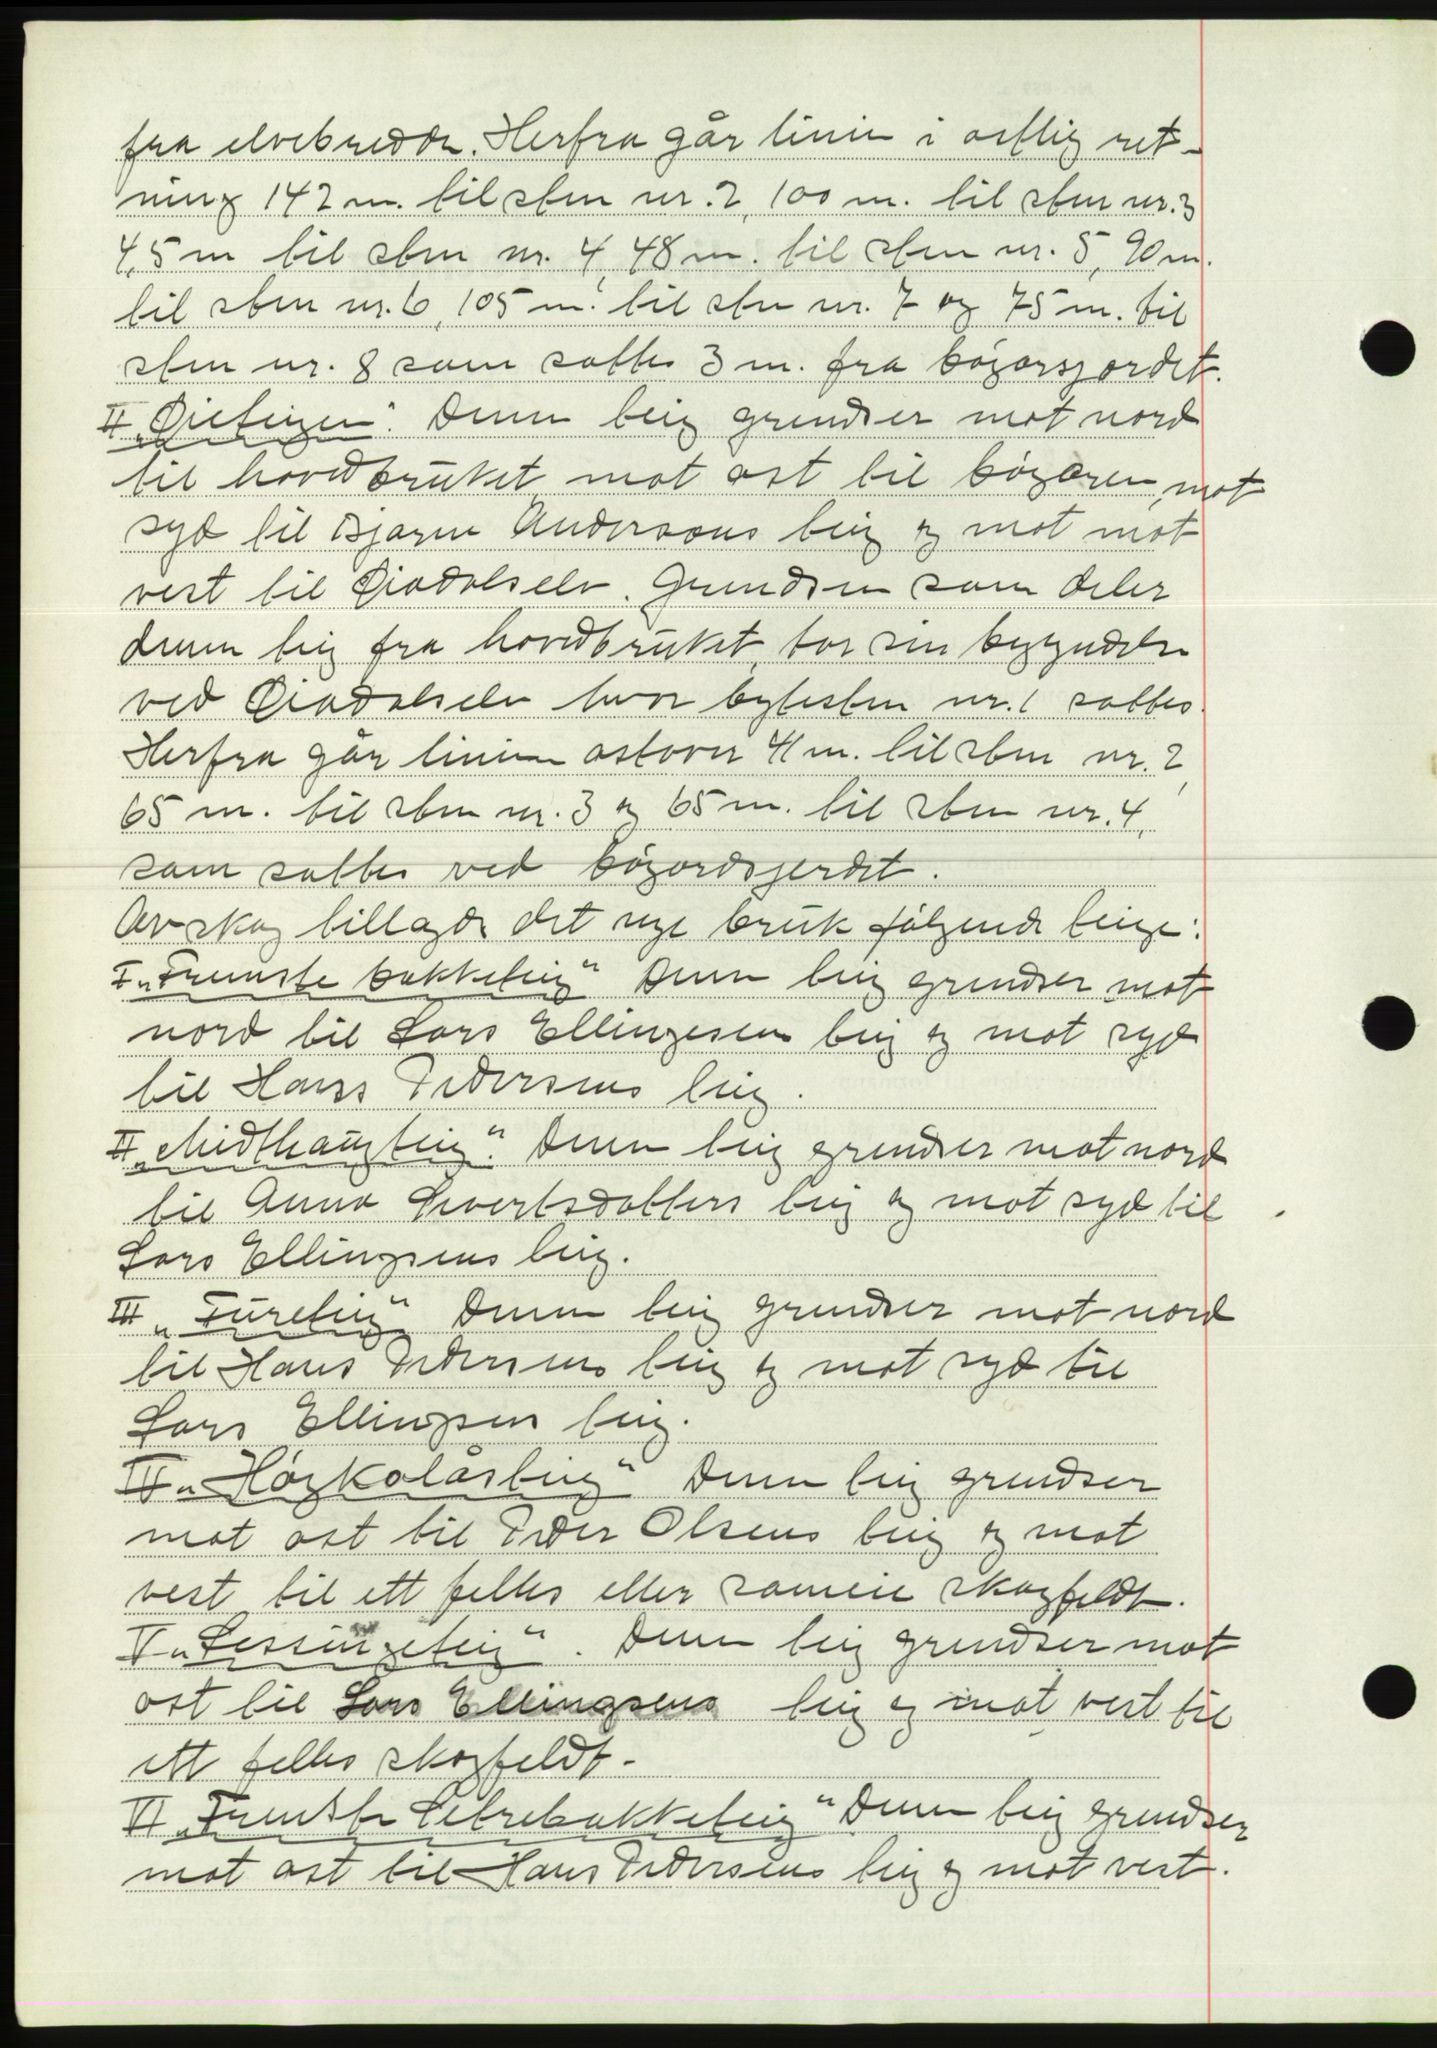 fra elvebredden. Herfra går linien i østlig ret-
ning 142 m. til sten nr. 2, 100 m. til sten nr. 3
4,5 m til sten nr. 4, 48 m. til sten nr. 5, 90 m.
til sten nr. 6, 105 m. til sten nr. 7 og 75 m. til
sten nr. 8 som sattes 3 m. fra bøgarsjordet.
II "Øieteigen". Denne teig grendser mot nord
til hovedbruket, mot øst til bøgaren, mot
syd til Bjarne Andersens teig og mot mot
vest til Øiadalselv. Grendsen som deler
denne teig fra hovedbruket, tar sin begyndelse
ved Øiadalselv hvor bytesten nr. 1 sattes.
Herfra går linien østover 41 m. til sten nr. 2,
65 m. til sten nr. 3 og 65 m. til sten nr. 4,
som sattes ved bøgardsgjerdet.
Av skog tillagdes det nye bruk følgende teige:
I "Fremste bakketeig" Denne teig grendser mot
nord til Lars Ellingsens teig og mot syd
til Hans Pedersens teig.
II "Midthaugteig". Denne teig grendser mot nord
til Anna Sivertsdatters teig og mot syd til
Lars Ellingsens teig.
III "Fureteig" Denne teig grendser mot nord
til Hans Pedersens teig og mot syd til
Lars Ellingsens teig.
IV "Høgkolåsteig" Denne teig grendser
mot øst til Peder Olsens teig og mot
vest til ett felles eller sameie skogfeldt.
V "Lessingeteig". Denne teig grendser mot
øst til Lars Ellingsens teig og mot vest til
ett felles skogfeldt.
VI "Fremste Setrebakketeig" Denne teig grendser
mot øst til Hans Pedersens teig og mot vest.